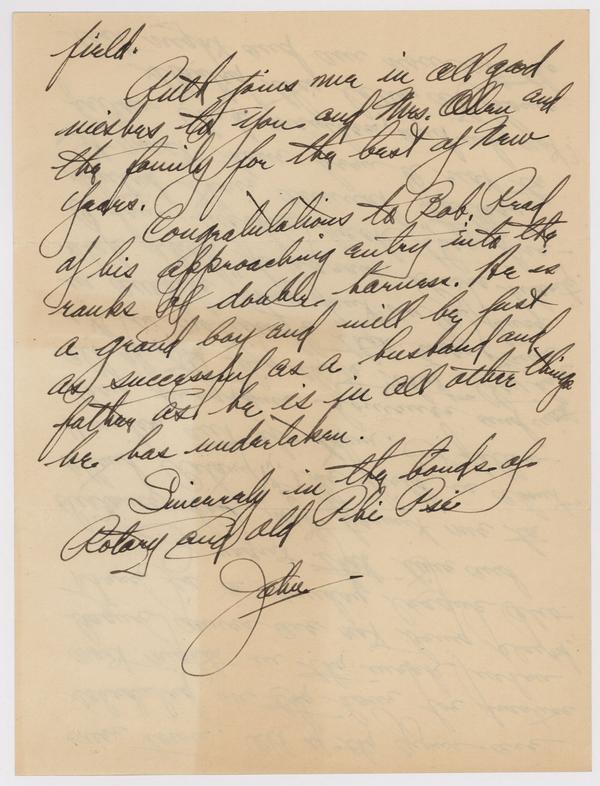 field.
Ruth joins me in all good
wishes to you and Mrs. Allen and
the family for the best of New
Years.
Congratulations to Bob. Read
of his approaching entry into the
ranks of double harness. He is
a grand boy and will be just
as successful as a husband and
father as he is in all other things
he has undertaken.
Sincerely in the bonds of
Rotary and old Phi Psi
John